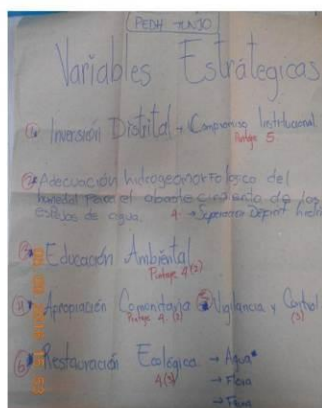 PEDH TUNJO
Variables Estrátegicas
1 Inversión Distrital y Compromiso Institucional.
Puntaje 5
2 Adecuación hidrogeomorfologica del
humedal para el abastecimiento de los
espejos de agua. 4
3 Educación Ambiental
Puntaje 4 (2)
4 Apropiación Comunitaria 5 Vigilancia y Control
Puntaje 4. (2) (3)
6 Restauración Ecológica → Agua
4 (3) → Flora
→ Fauna